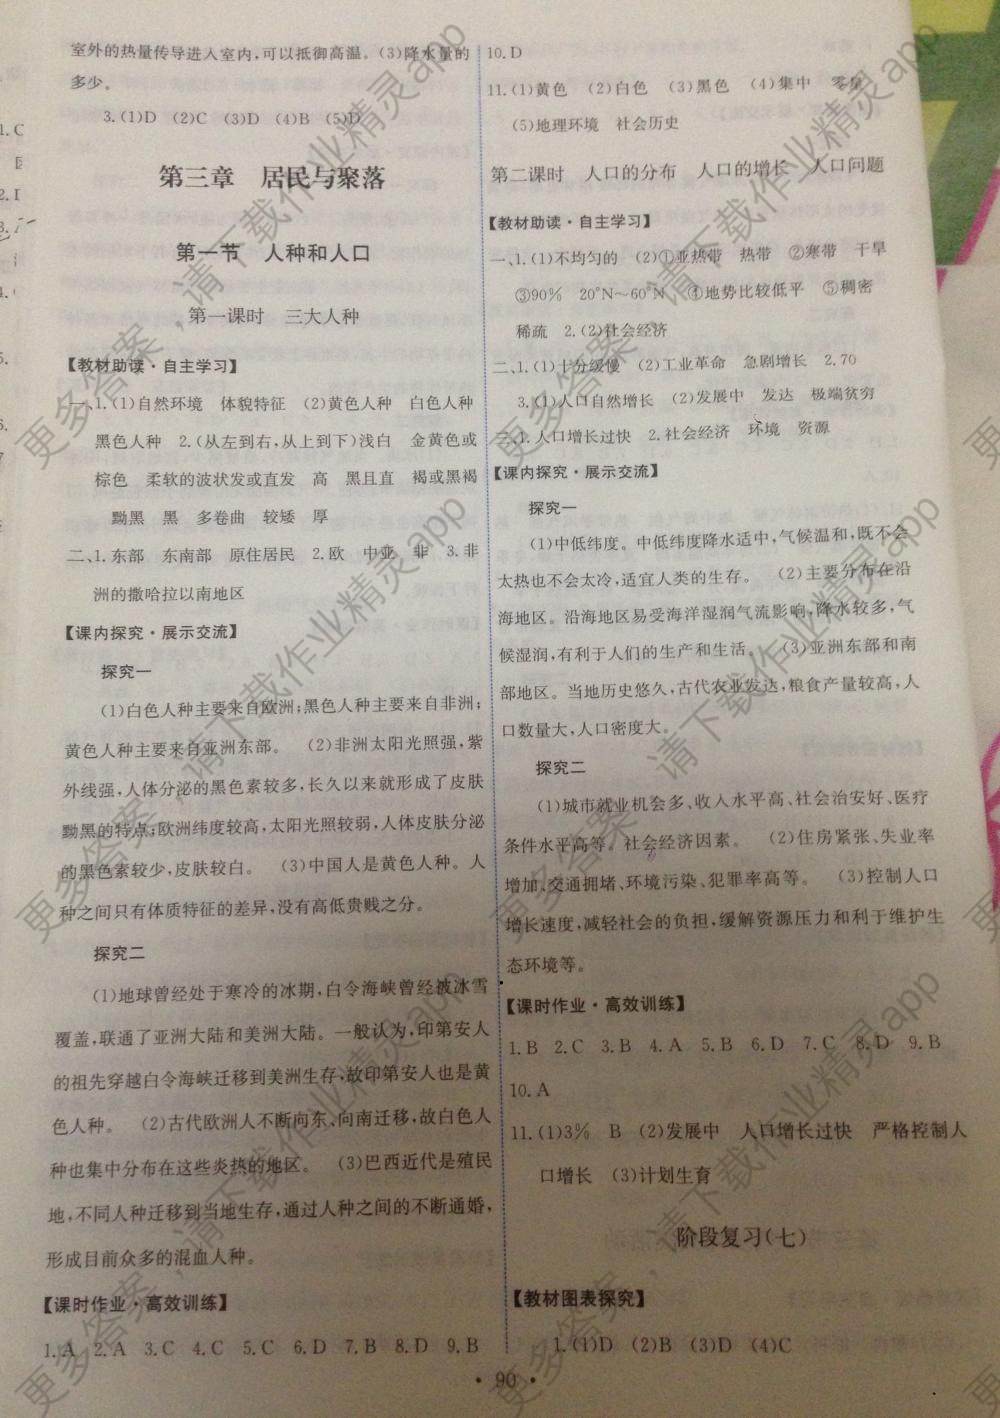 室外的热量传导进入室内,可以抵御高温。(3)降水量的
多少。
3.(1)D (2)C (3)D (4)B (5)D
第三章 居民与聚落
第一节 人种和人口
第一课时 三大人种
【教材助读·自主学习】
一、1.(1)自然环境 体貌特征 (2)黄色人种 白色人种
黑色人种 2.(从左到右,从上到下)浅白 金黄色或
棕色 柔软的波状发或直发 高 黑且直 褐或黑褐
黝黑 黑 多卷曲 较矮 厚
二、1.东部 东南部 原住居民 2.欧 中亚 非 3.非
洲的撒哈拉以南地区
【课内探究·展示交流】
探究一
(1)白色人种主要来自欧洲;黑色人种主要来自非洲;
黄色人种主要来自亚洲东部。 (2)非洲太阳光照强,紫
外线强,人体分泌的黑色素较多,长久以来就形成了皮肤
黝黑的特点;欧洲纬度较高,太阳光照较弱,人体皮肤分泌
的黑色素较少,皮肤较白。 (3)中国人是黄色人种。人
种之间只有体质特征的差异,没有高低贵贱之分。
探究二
(1)地球曾经处于寒冷的冰期,白令海峡曾经被冰雪
覆盖,联通了亚洲大陆和美洲大陆。一般认为,印第安人
的祖先穿越白令海峡迁移到美洲生存,故印第安人也是黄
色人种。 (2)古代欧洲人不断向东、向南迁移,故白色人
种也集中分布在这些炎热的地区。 (3)巴西近代是殖民
地,不同人种迁移到当地生存,通过人种之间的不断通婚,
形成目前众多的混血人种。
【课时作业·高效训练】
1.A 2.A 3.C 4.C 5.C 6.D 7.B 8.D 9.B
10.D
11.(1)黄色 (2)白色 (3)黑色 (4)集中 零星
(5)地理环境 社会历史
第二课时 人口的分布 人口的增长 人口问题
【教材助读·自主学习】
一、1.(1)不均匀的 (2)①亚热带 热带 ②寒带 干旱
③90% 20°N~60°N ④地势比较低平 ⑤稠密
稀疏 2.(2)社会经济
二、1.(1)十分缓慢 (2)工业革命 急剧增长 2.70
3.(1)人口自然增长 (2)发展中 发达 极端贫穷
三、1.人口增长过快 2.社会经济 环境 资源
【课内探究·展示交流】
探究一
(1)中低纬度。中低纬度降水适中,气候温和,既不会
太热也不会太冷,适宜人类的生存。 (2)主要分布在沿
海地区。沿海地区易受海洋湿润气流影响,降水较多,气
候湿润,有利于人们的生产和生活。 (3)亚洲东部和南
部地区。当地历史悠久,古代农业发达,粮食产量较高,人
口数量大,人口密度大。
探究二
(1)城市就业机会多、收入水平高、社会治安好、医疗
条件水平高等。社会经济因素。 (2)住房紧张、失业率
增加、交通拥堵、环境污染、犯罪率高等。 (3)控制人口
增长速度,减轻社会的负担,缓解资源压力和利于维护生
态环境等。
【课时作业·高效训练】
1.B 2.C 3.B 4.A 5.B 6.D 7.C 8.D 9.B
10.A
11.(1)3% B (2)发展中 人口增长过快 严格控制人
口增长 (3)计划生育
阶段复习(七)
【教材图表探究】
1.(1)D (2)B (3)D (4)C
·90·
更多答案,请下载作业精灵app